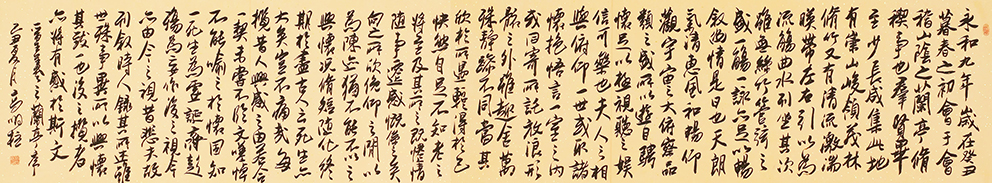 永和九年歲在癸丑
暮春之初會于會
稽山陰之蘭亭脩
禊事也羣賢畢
至少長咸集此地
有崇山峻領茂林
脩竹又有清流激湍
映帶左右引以為
流觴曲水列坐其次
雖無絲竹管弦之
盛一觴一詠亦足以暢
敘幽情是日也天朗
氣清惠風和暢仰
觀宇宙之大俯察品
類之盛所以遊目騁
懷足以極視聽之娛
信可樂也夫人之相
與俯仰一世或取諸
懷抱悟言一室之內
或因寄所託放浪形
骸之外雖趣舍萬
殊靜躁不同當其
欣於所遇輒得於己
快然自足不知老之
將至及其所之既倦情
隨事遷感慨係之矣
向之所欣俛仰之間以
為陳迹猶不能不以之
興懷況脩短隨化終
期於盡古人云死生亦
大矣豈不痛哉每
攬昔人興感之由若合
一契未嘗不臨文嗟悼
不能喻之於懷固知
一死生為虛誕齊彭
殤為妄作後之視今
亦由今之視昔悲夫故
列敘時人錄其所述雖
世殊事異所以興懷
其致一也後之攬者
亦將有感於斯文
王羲之蘭亭序